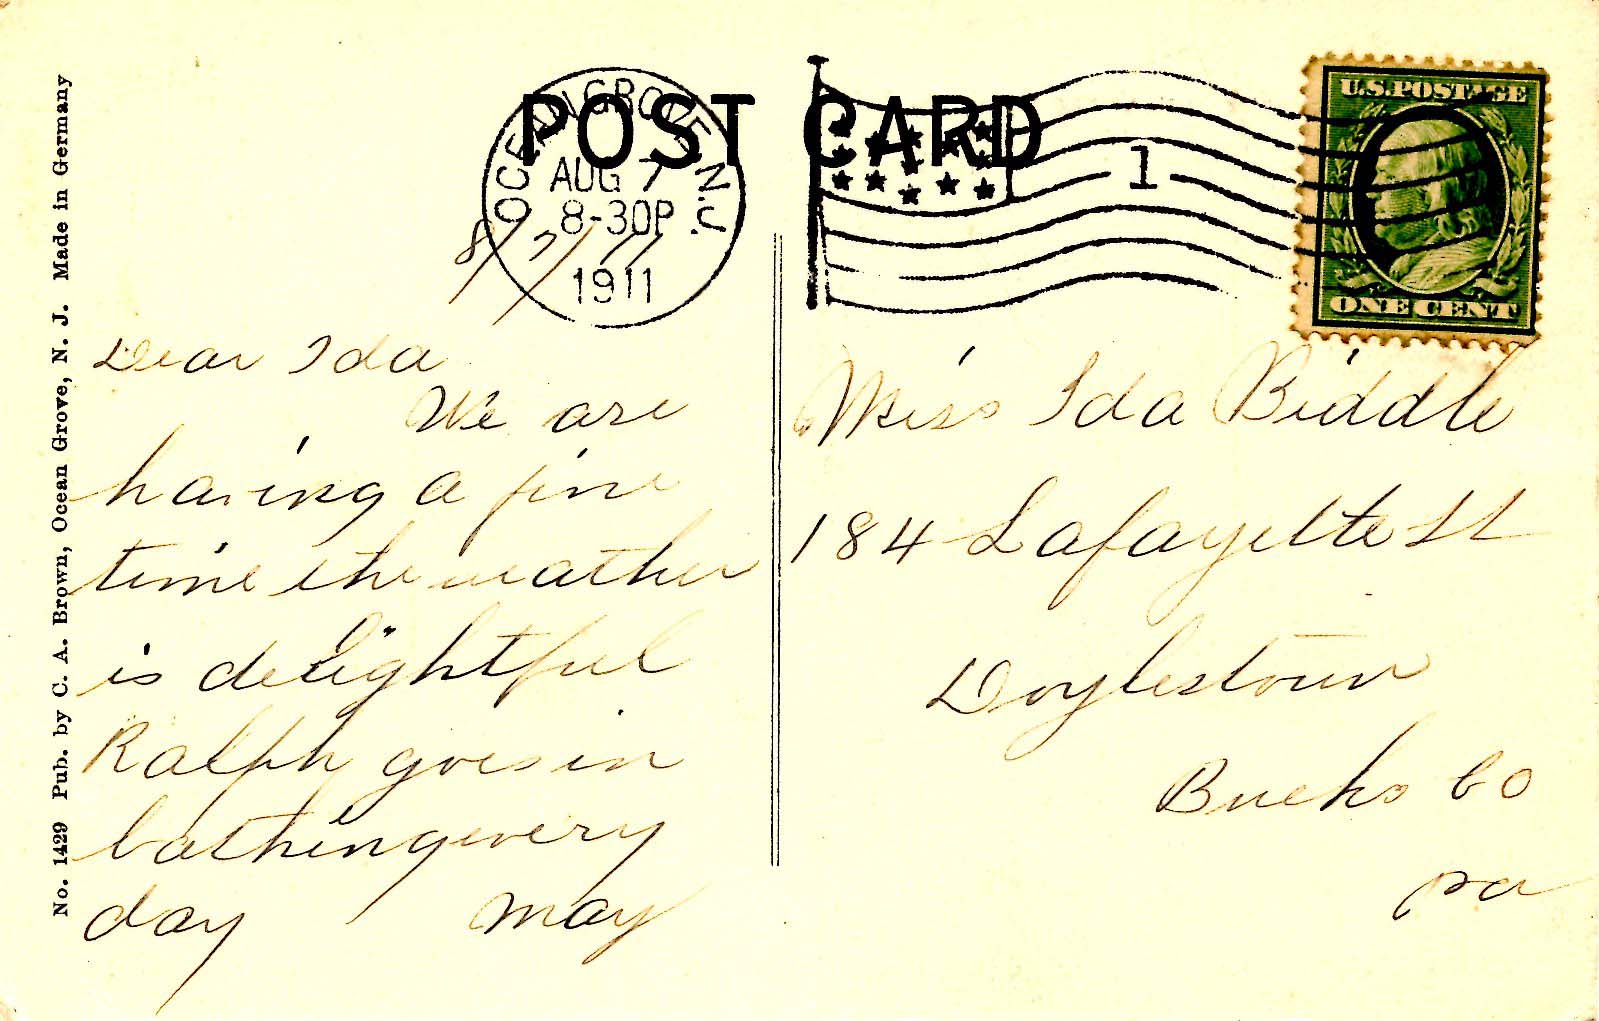 POST CARD
OCEAN GROVE N.J.
AUG 7
8-30P
1911
1
U.S. POSTAGE
ONE CENT
8/7/11
Dear Ida
We are
having a fine
time the weather
is delightful
Ralph goes in
bathing every
day May
Miss Ida Biddle
184 Lafayette St
Doylestown
Bucks Co
Pa
No. 1429 Pub. by C. A. Brown, Ocean Grove, N. J. Made in Germany